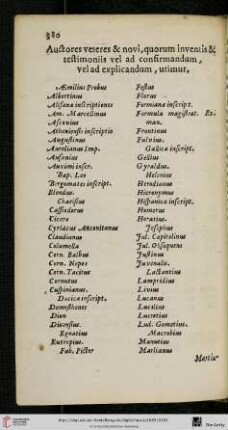 980
Auctores veteres & novi, quorum inventis &
testimoniis vel ad confirmandum,
vel ad explicandum, utimur.
Æmilius Probus
Albertinus
Alifana inscriptiones
Am. Marcellinus
Asconius
Atheniensis inscriptio
Augustinus
Aurelianus Imp.
Ausonius
Auximi inscr.
Bap. Leo
Bergomates inscript.
Blondus.
Charisius
Cassiodorus
Cicero
Cyriacus Anconitanus
Claudianus
Columella
Corn. Balbus
Corn. Nepos
Corn. Tacitus
Cornutus
Cuspinianus.
Dacica inscript.
Demosthenes
Dion
Dionysius.
Egnatius
Eutropius.
Fab. Pictor
Festus
Florus
Formiana inscript.
Formula magistrat. Ro-
man.
Frontinus
Fulvius.
Gallica inscript.
Gellius
Gyraldus.
Helenius
Herodianus
Hieronymus
Hispanica inscript.
Homerus
Horatius.
Josephus
Jul. Capitolinus
Jul. Obsequens
Justinus
Juvenalis.
Lactantius
Lampridius
Livius
Lucanus
Lucilius
Lucretius
Lud. Gometius.
Macrobius
Manutius
Marlianus
Martia-